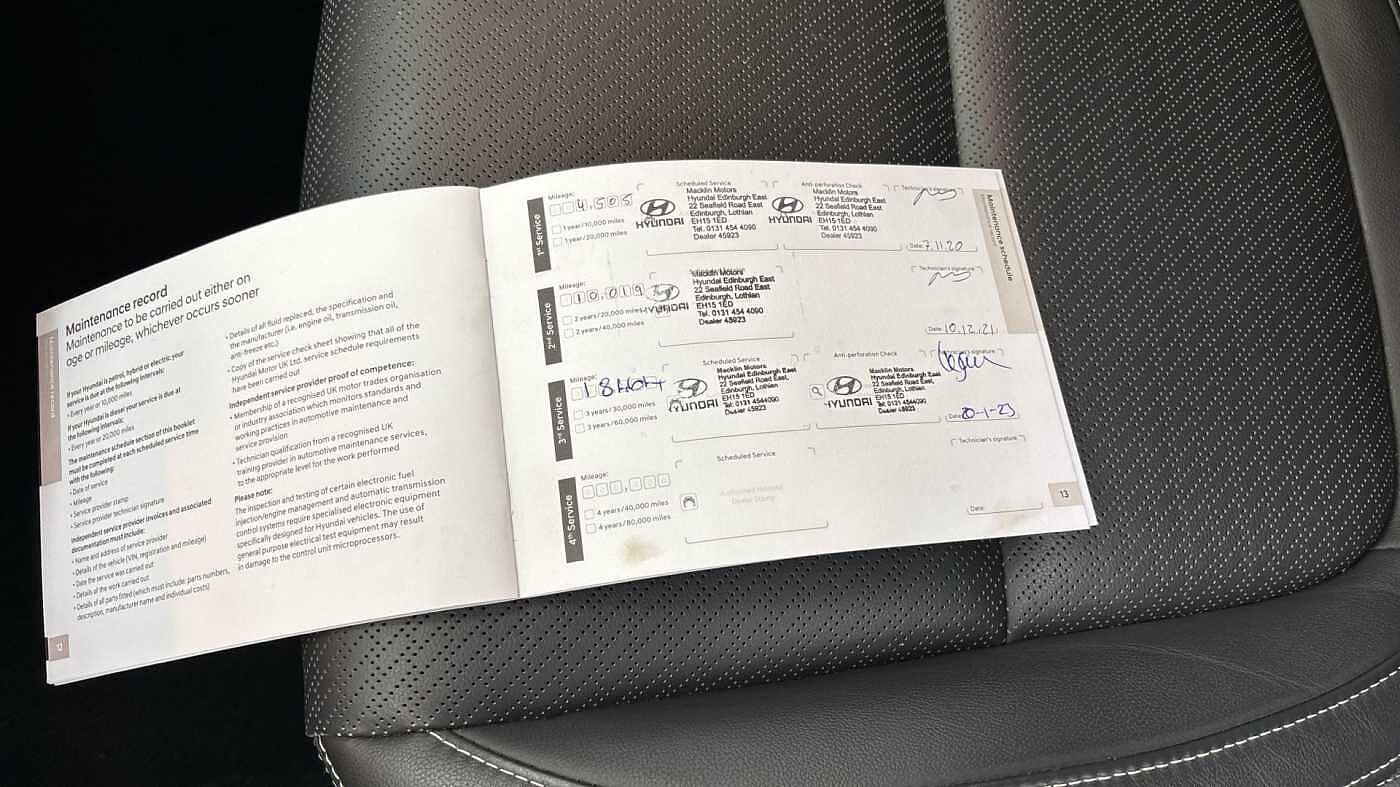 Maintenance record
Maintenance to be carried out either on
age or mileage, whichever occurs sooner
If your Hyundai is petrol, hybrid or electric your
service is due at the following intervals:
• Every year or 10,000 miles
If your Hyundai is diesel your service is due at
the following intervals:
• Every year or 20,000 miles
The maintenance schedule section of this booklet
must be completed at each scheduled service time
with the following:
• Date of service
• Mileage
• Service provider stamp
• Service provider technician signature
Independent service provider invoices and associated
documentation must include:
• Name and address of service provider
• Details of the vehicle (VIN, registration and mileage)
• Date the service was carried out
• Details of the work carried out
• Details of all parts fitted (which must include: parts numbers,
description, manufacturer name and individual costs)
• Details of all fluid replaced, the specification and
the manufacturer (i.e. engine oil, transmission oil,
anti-freeze etc.)
• Copy of the service check sheet showing that all of the
Hyundai Motor UK Ltd. service schedule requirements
have been carried out
Independent service provider proof of competence:
• Membership of a recognised UK motor trades organisation
or industry association which monitors standards and
working practices in automotive maintenance and
service provision
• Technician qualification from a recognised UK
training provider in automotive maintenance services,
to the appropriate level for the work performed
Please note:
The inspection and testing of certain electronic fuel
injection/engine management and automatic transmission
control systems require specialised electronic equipment
specifically designed for Hyundai vehicles. The use of
general purpose electrical test equipment may result
in damage to the control unit microprocessors.
12
1st Service
Mileage:
4,505
1 year/10,000 miles
1 year/20,000 miles
Scheduled Service
HYUNDAI
Macklin Motors
Hyundai Edinburgh East
22 Seafield Road East
Edinburgh, Lothian
EH15 1ED
Tel. 0131 454 4090
Dealer 45923
Anti-perforation Check
HYUNDAI
Macklin Motors
Hyundai Edinburgh East
22 Seafield Road East
Edinburgh, Lothian
EH15 1ED
Tel. 0131 454 4090
Dealer 45923
Technician's signature
Date: 7.11.20
Maintenance schedule
2nd Service
Mileage:
10,019
2 years/20,000 miles
2 years/40,000 miles
HYUNDAI
Macklin Motors
Hyundai Edinburgh East
22 Seafield Road East
Edinburgh, Lothian
EH15 1ED
Tel. 0131 454 4090
Dealer 45923
Technician's signature
Date: 10.12.21
3rd Service
Mileage:
3 years/30,000 miles
3 years/60,000 miles
Scheduled Service
HYUNDAI
Macklin Motors
Hyundai Edinburgh East
22 Seafield Road East,
Edinburgh, Lothian
EH15 1ED
Tel: 0131 4544090
Dealer 45923
Anti-perforation Check
HYUNDAI
Macklin Motors
Hyundai Edinburgh East
22 Seafield Road East,
Edinburgh, Lothian
EH15 1ED
Tel: 0131 4544090
Dealer 45923
Technician's signature
Date: 20-1-23
4th Service
Mileage:
4 years/40,000 miles
4 years/80,000 miles
Scheduled Service
Authorised Hyundai
Dealer Stamp
Technician's signature
Date:
13